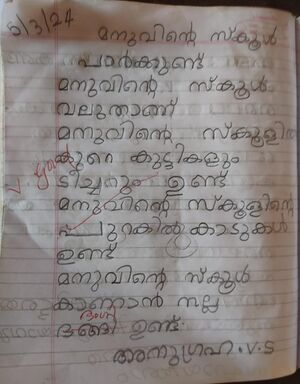 5/3/24
മനുവിന്റെ സ്കൂൾ
പാർക്കുണ്ട്
മനുവിന്റെ സ്കൂൾ
വലുതാണ്
മനുവിന്റെ സ്കൂളിൽ
കുറെ കുട്ടികളും
ടീച്ചറും ഉണ്ട്
മനുവിന്റെ സ്കൂളിന്റെ
പുറകിൽ കാടുകൾ
ഉണ്ട്
മനുവിന്റെ സ്കൂൾ
കാണാൻ നല്ല
ഭംഗി
ഭങ്ങി ഉണ്ട്.
അനുഗ്രഹ.v.s
v. good